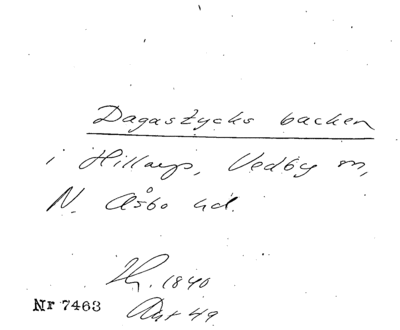 Dagastycks backen
i Hillarp, Vedby sn,
N. Åsbo hd.
1840
Nr 7463
Akt 49